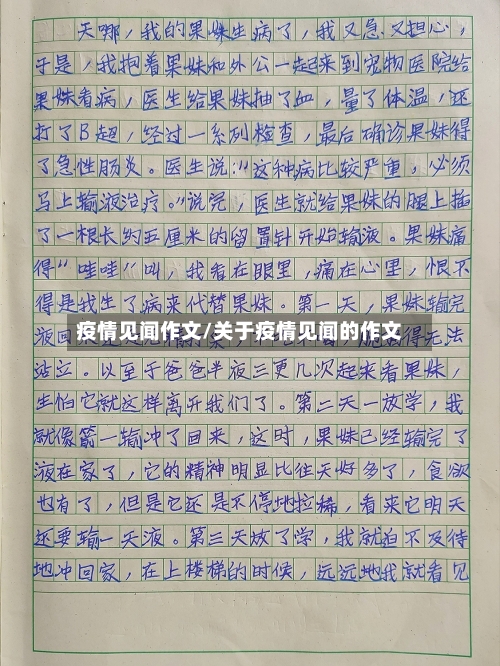 天哪，我的果妹生病了，我又急又担心，
于是，我抱着果妹和外公一起来到宠物医院给
果妹看病，医生给果妹抽了血，量了体温，还
打了B超，经过一系列检查，最后确诊果妹得
了急性肠炎。医生说：“这种病比较严重，必须
马上输液治疗。”说完，医生就给果妹的腿上插
了一根长约五厘米的留置针开始输液。果妹痛
得“哇哇”叫，我看在眼里，痛在心里，恨不
得是我生了病来代替果妹。第一天，果妹输完
疫情见闻作文/关于疫情见闻的作文
液回 得无法
站立。以至于爸爸半夜三更几次起来看果妹，
生怕它就这样离开我们了。第二天一放学，我
就像箭一输冲了回来，这时，果妹已经输完了
液在家了，它的精神明显比往天好多了，食欲
也有了，但是它还是不停地拉稀，看来它明天
还要输一天液。第三天放了学，我就迫不及待
地冲回家，在上楼梯的时候，远远地我就看见